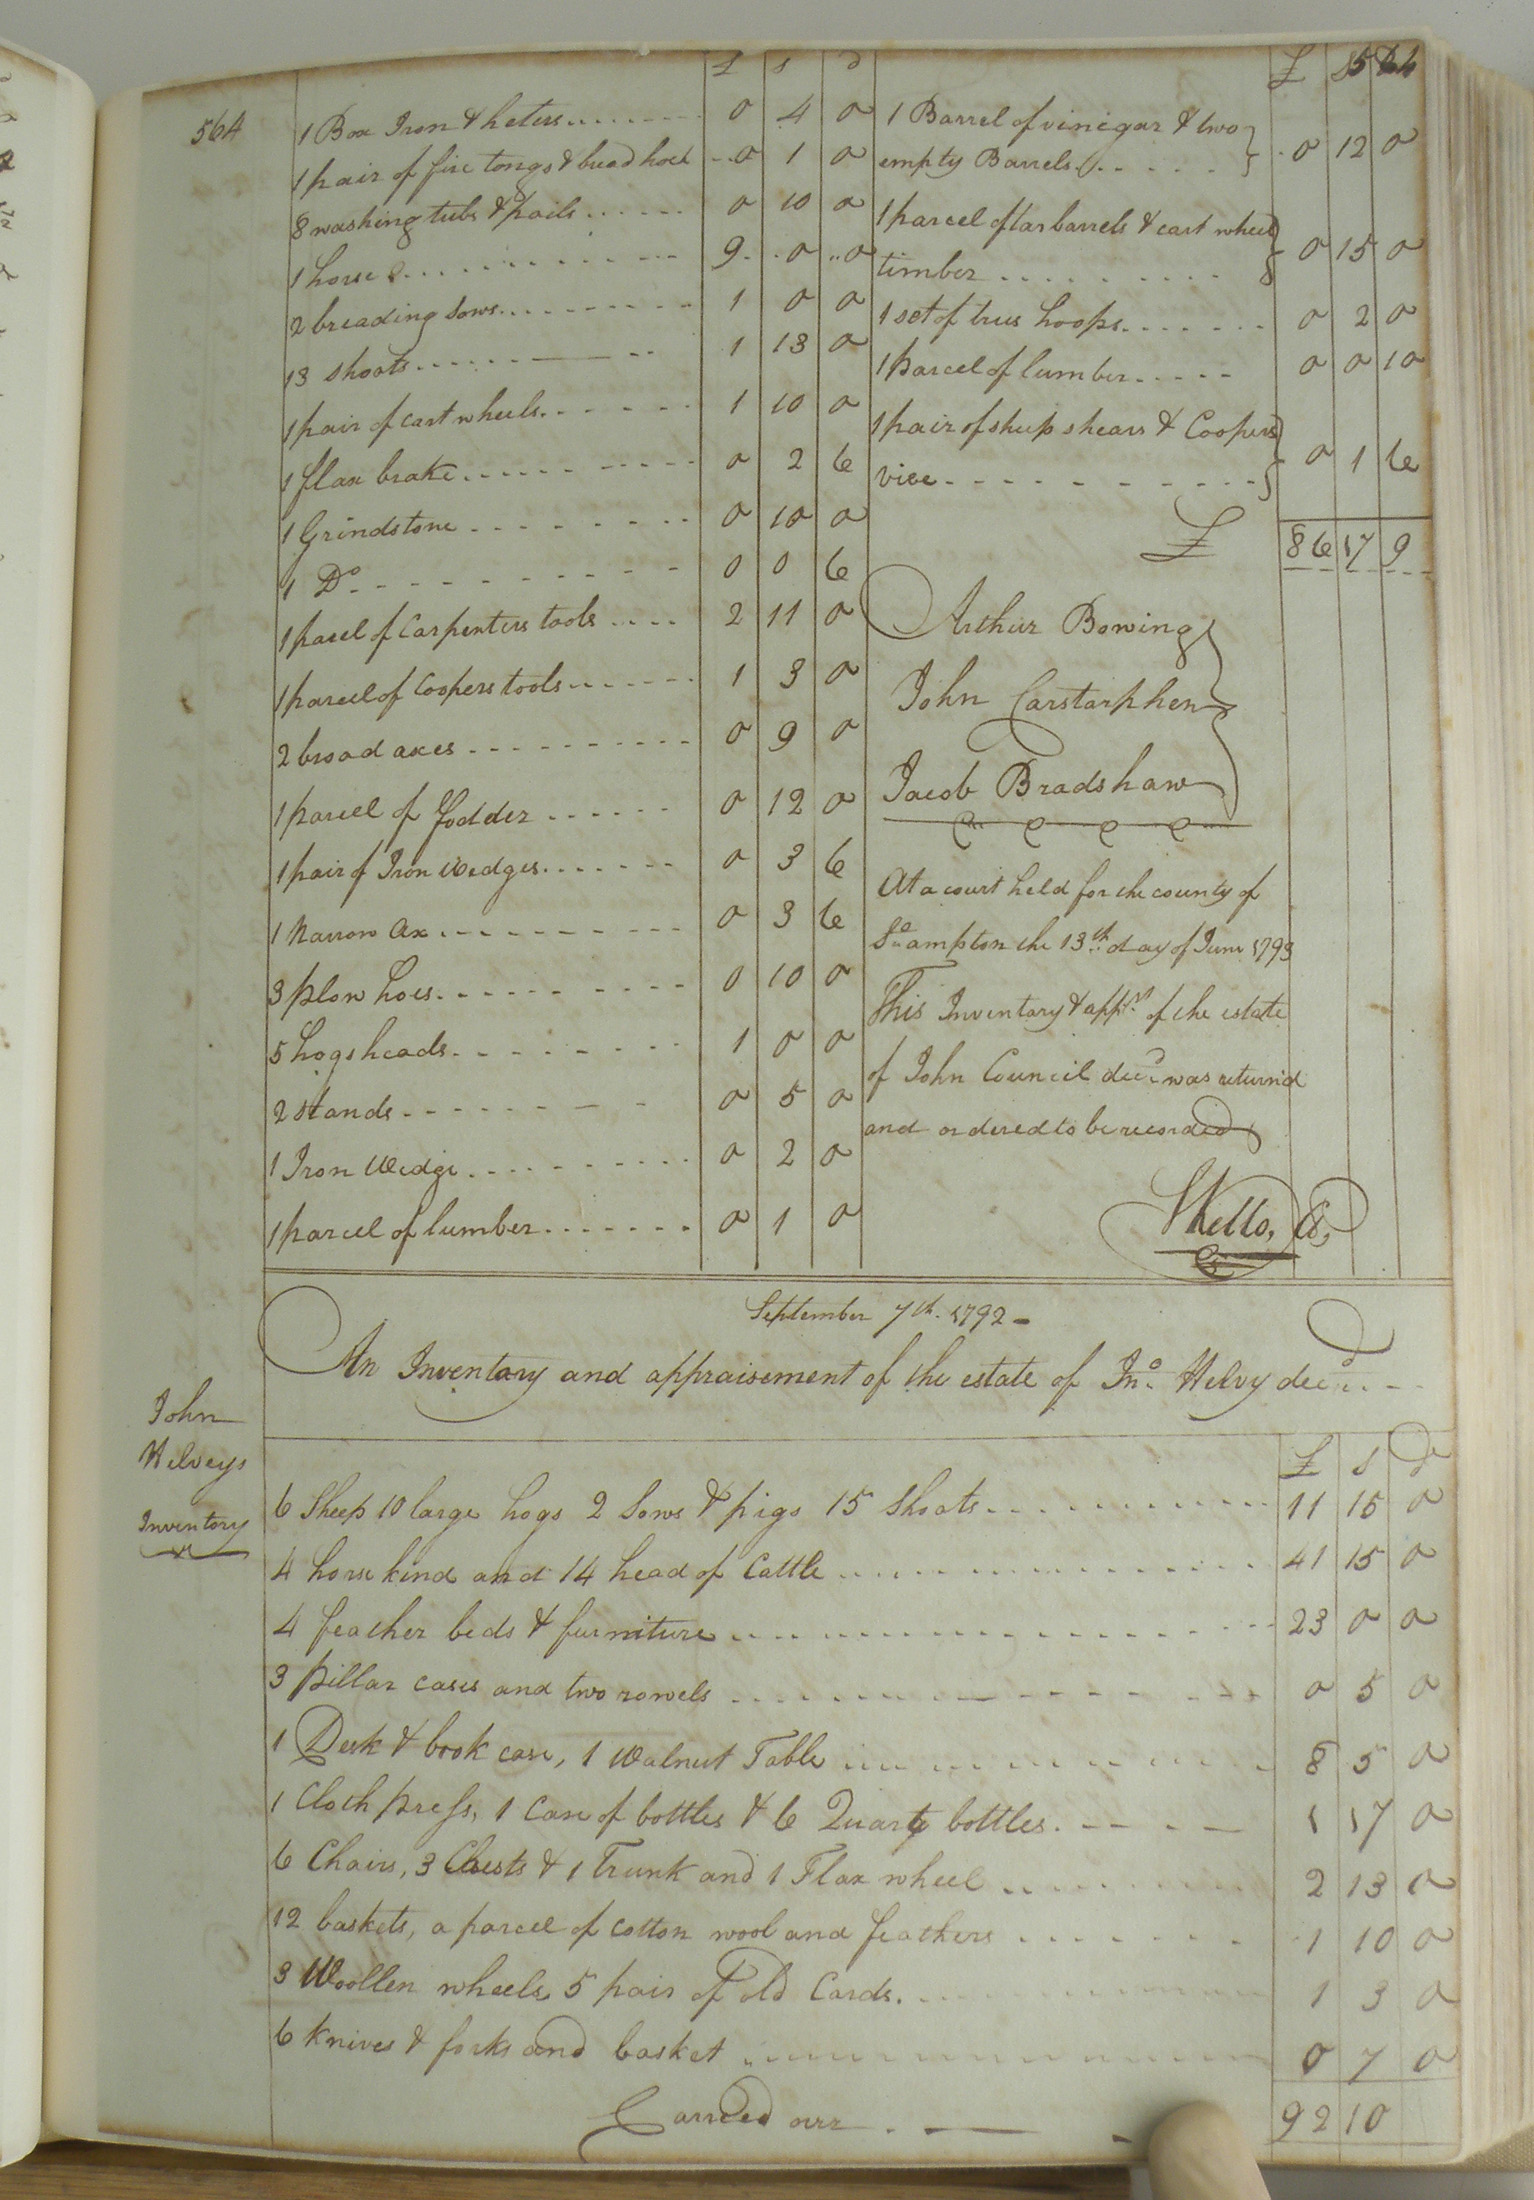 564
£ s d
1 Box Iron & heters....... 0 4 0
1 pair of fire tongs & bread hoe 0 1 0
8 washing tubs & pails...... 0 10 0
1 horse............ 9 0 0
2 breading sows......... 1 0 0
13 shoats......... 1 13 0
1 pair of cart wheels...... 1 10 0
1 flax brake.......... 0 2 6
1 Grindstone........ 0 10 0
1 Do.......... 0 0 6
1 pacel of Carpenters tools.... 2 11 0
1 parcel of Coopers tools...... 1 3 0
2 broad axes.......... 0 9 0
1 parcel of Fodder...... 0 12 0
1 pair of Iron Wedges....... 0 3 6
1 Narrow Ax......... 0 3 6
3 plow hoes......... 0 10 0
5 hogsheads........ 1 0 0
2 Stands........ 0 5 0
1 Iron Wedge.......... 0 2 0
1 parcel of lumber....... 0 1 0
£ s d
564
1 Barrel of vinegar & two
empty Barrels...... 0 12 0
1 parcel of tar barrels & cart wheel
timber......... 0 15 0
1 set of trus hoops....... 0 2 0
1 parcel of lumber..... 0 0 10
1 pair of sheep shears & Coopers
vice.......... 0 1 6
£ 86 17 9
Arthur Bowing
John Carstarphen
Jacob Bradshaw
At a court held for the county of
So.ampton the 13th day of June 1793
This Inventory & appt. of the estate
of John Council decd. was returnd
and ordered to be recorded
SKello, C.
September 7th. 1792-
An Inventory and appraisement of the estate of Jno. Helvy decd...
John
Helveys
Inventory
£ s d
6 Sheep 10 large hogs 2 Sows & pigs 15 Shoats........... 11 15 0
4 horse kind and 14 head of Cattle.............. 41 15 0
4 feather beds & furniture................ 23 0 0
3 pillar cases and two towels............ 0 5 0
1 Desk & book case, 1 Walnut Table............ 8 5 0
1 Cloth press, 1 Case of bottles & 6 Quart bottles..... 1 17 0
6 Chairs, 3 Chests & 1 Trunk and 1 Flax wheel........ 2 13 0
12 baskets, a parcel of cotton wool and feathers....... 1 10 0
3 Woollen wheels 5 pair of old Cards........... 1 3 0
6 Knives & forks and basket............... 0 7 0
Carried over. 92 10